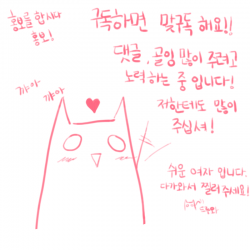 홍보를 합시다
홍보!
구독하면 맞구독 해요!!
댓글, 골잉 많이 주려고
노력 하는 중 입니다!
저한테도 많이
주십셔!
꺄아
꺄아
쉬운 여자 입니다.
다가와서 찔러 주세요!